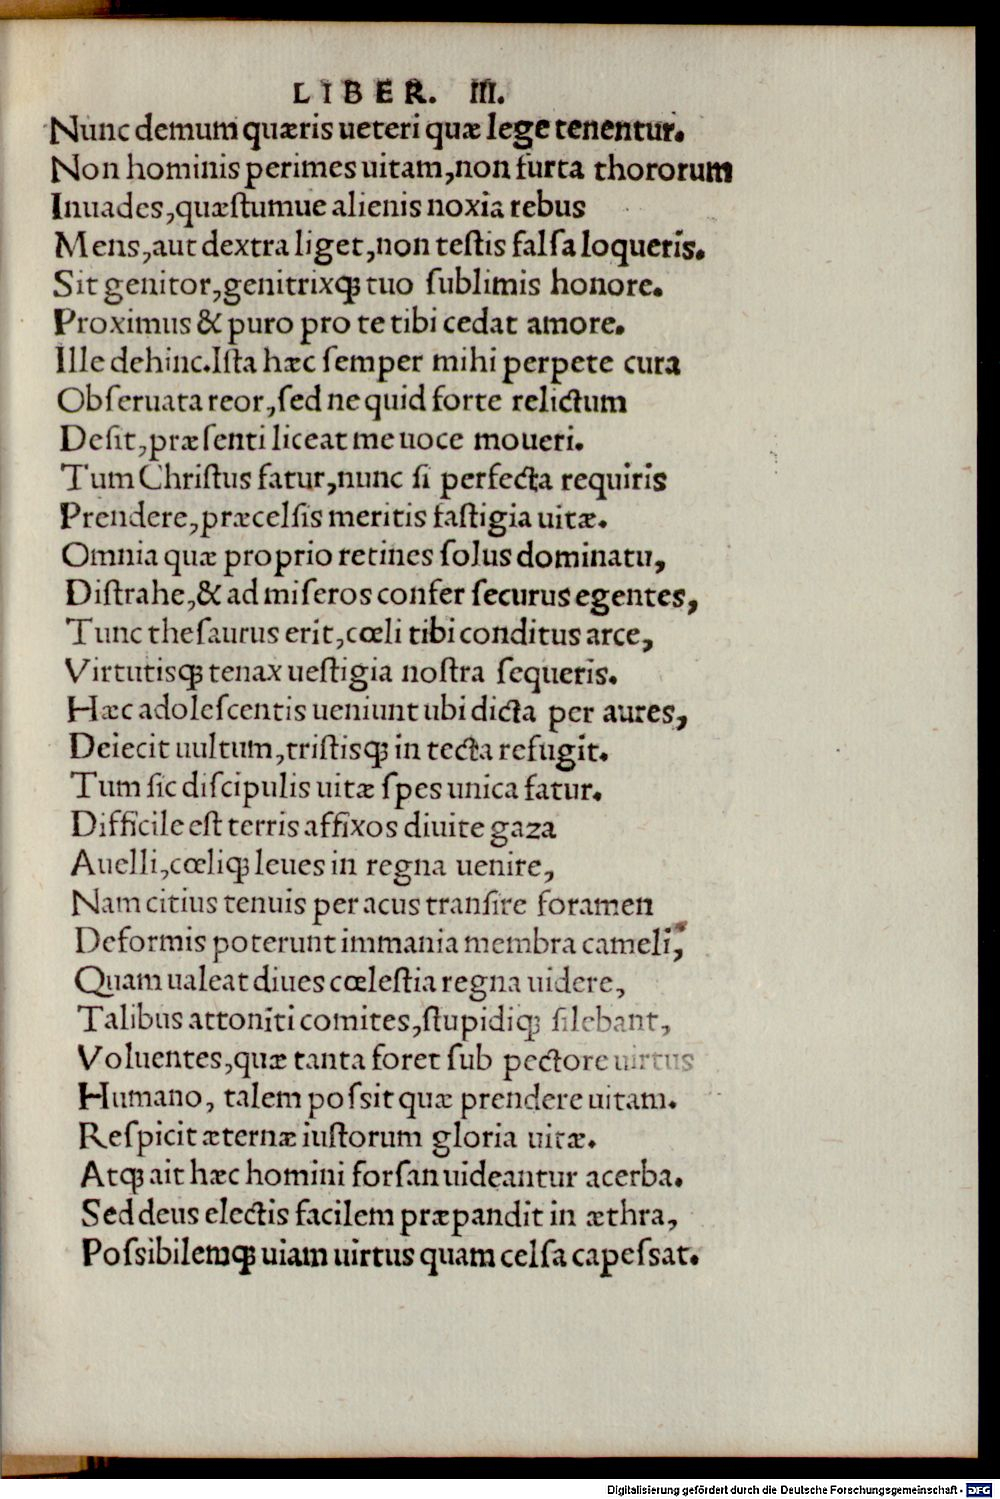 LIBER. III.
Nunc demum quæris ueteri quæ lege tenentur.
Non hominis perimes uitam,non furta thororum
Inuades,quæſtumue alienis noxia rebus
Mens,aut dextra liget,non teſtis falſa loqueris.
Sit genitor,genitrixq; tuo ſublimis honore.
Proximus & puro pro te tibi cedat amore.
Ille dehinc.Iſta hæc ſemper mihi perpete cura
Obſeruata reor,ſed ne quid forte relictum
Deſit,præſenti liceat me uoce moueri.
Tum Chriſtus fatur,nunc ſi perfecta requiris
Prendere,præcelſis meritis faſtigia uitæ.
Omnia quæ proprio retines ſolus dominatu,
Diſtrahe,& ad miſeros confer ſecurus egentes,
Tunc theſaurus erit,cœli tibi conditus arce,
Virtutisq; tenax ueſtigia noſtra ſequeris.
Hæc adoleſcentis ueniunt ubi dicta per aures,
Deiecit uultum,triſtisq; in tecta refugit.
Tum ſic diſcipulis uitæ ſpes unica fatur.
Difficile eſt terris affixos diuite gaza
Auelli,cœliq; leues in regna uenire,
Nam citius tenuis per acus tranſire foramen
Deformis poterunt immania membra cameli,
Quam ualeat diues cœleſtia regna uidere,
Talibus attoniti comites,ſtupidiq; ſilebant,
Voluentes,quæ tanta foret ſub pectore uirtus
Humano, talem poſsit quæ prendere uitam.
Reſpicit æternæ iuſtorum gloria uitæ.
Atq; ait hæc homini forſan uideantur acerba.
Sed deus electis facilem præpandit in æthra,
Poſsibilemq; uiam uirtus quam celſa capeſsat.
Digitalisierung gefördert durch die Deutsche Forschungsgemeinschaft - DFG